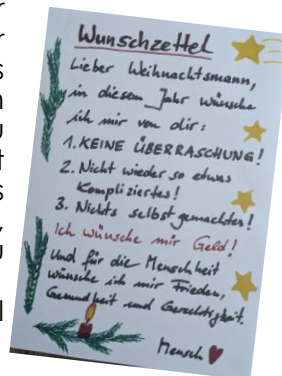 Wunschzettel
Lieber Weihnachtsmann,
in diesem Jahr wünsche
ich mir von dir:
1. KEINE ÜBERRASCHUNG!
2. Nicht wieder so etwas
Kompliziertes!
3. Nichts selbstgemachtes!
Ich wünsche mir Geld!
Und für die Menschheit
wünsche ich mir Frieden,
Gesundheit und Gerechtigkeit.
Mensch